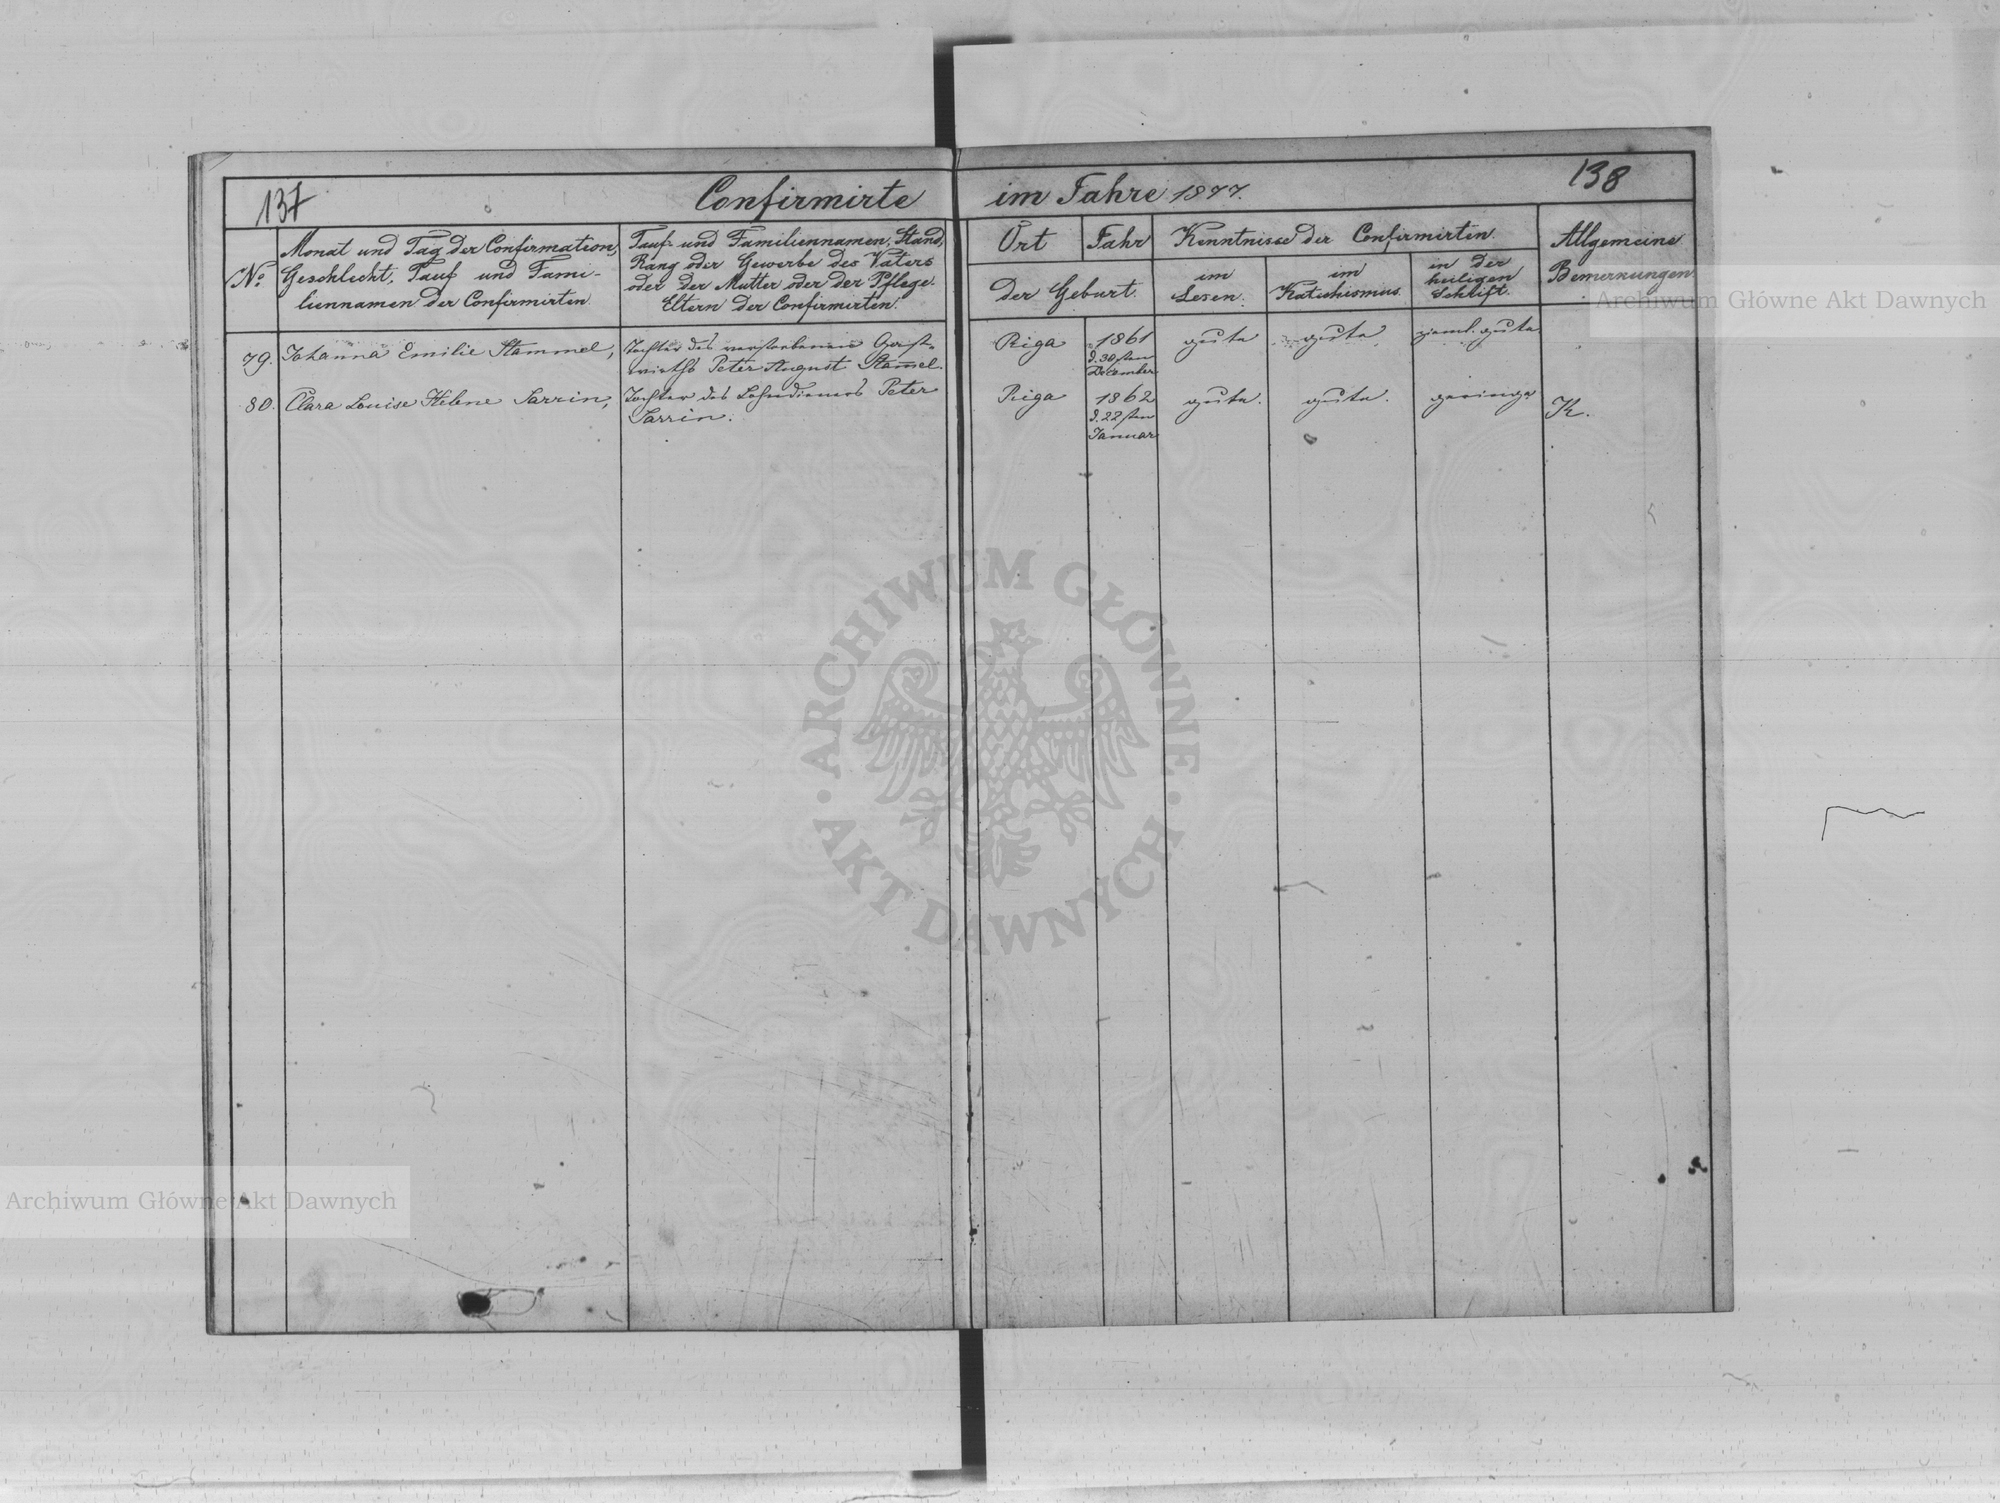 137
Confirmirte im Jahre 1877.
138
No.
Monat und Tag der Confirmation,
Geschlecht, Tauf und Fami-
liennamen der Confirmirten.
Tauf- und Familiennamen, Stand,
Rang oder Gewerbe des Vaters
oder der Mutter oder der Pflege-
Eltern der Confirmirten.
Ort
Jahr
der Geburt.
Kenntnisse der Confirmirten.
im
Lesen.
im
Katechismus.
in der
heiligen
Schrift.
Allgemeine
Bemerkungen
79. Johanna Emilie Stammel,
Tochter des verstorbenen Gast-
wirths Peter August Stam̄el.
Riga
1861
d. 30sten
December
gute
gute
zieml. gute
80. Clara Louise Helene Sarrin,
Tochter des Lohndieners Peter
Sarrin.
Riga
1862
d. 22sten
Januar
gute.
gute.
geringe
K.
Archiwum Główne Akt Dawnych
ARCHIWUM GŁÓWNE · AKT DAWNYCH ·
Archiwum Główne Akt Dawnych